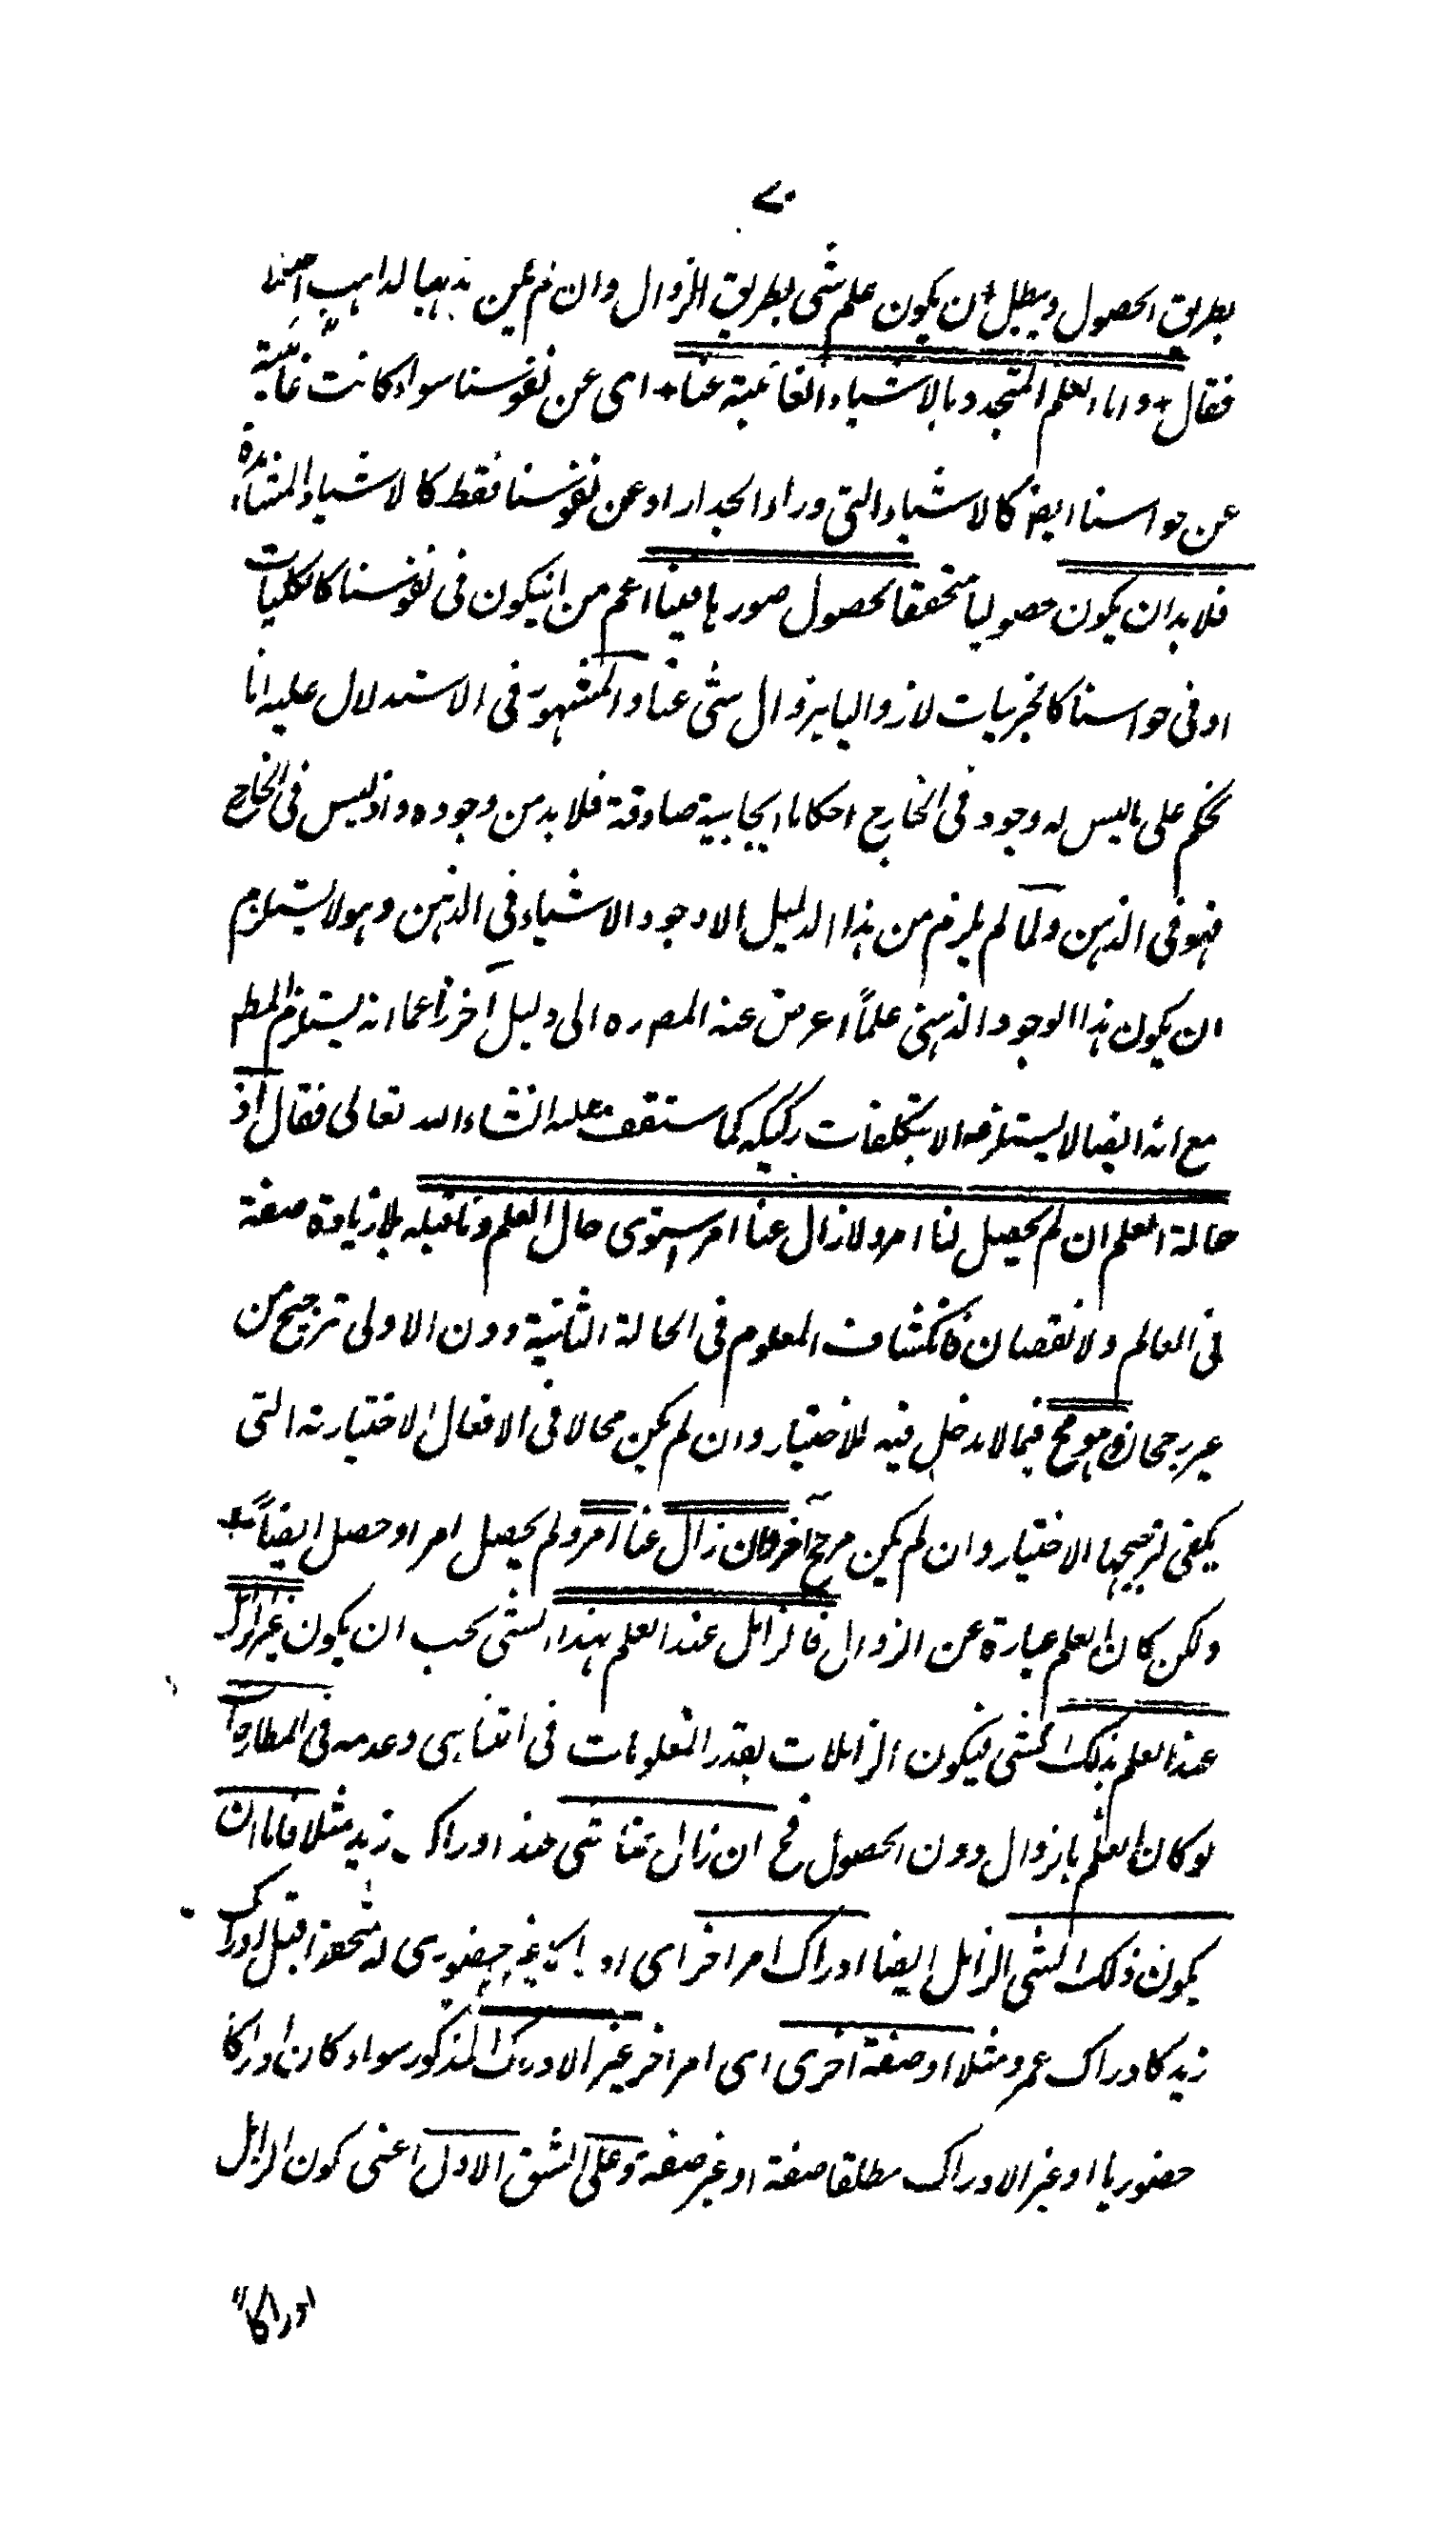 ۷۰
بطريق الحصول ويبطل ان يكون علم شى بطريق الزوال وان لم يكن مذهبا لذاهب ايضا
فقال + واما العلم المتجدد بالاشياء الغائبة عنا + اى عن نفوسنا سواء كانت غائبة
عن حواسنا ايضا كالاشياء التى وراء الجدار او عن نفوسنا فقط كالاشياء المشاهدة
فلا بد ان يكون حصوليا متحققا بحصول صورها فينا اعم من انيكون فى نفوسنا كالكليات
او فى حواسنا كالجزئيات لا زواليا بزوال شئ عنا والمشهور فى الاستدلال عليه انا
نحكم على ماليس له وجود فى الخارج احكاما ايجابية صادقة فلا بد من وجوده واذ ليس فى الخارج
فهو فى الذهن ولما لم يلزم من هذا الدليل الا وجود الاشياء فى الذهن وهو لا يستلزم
ان يكون هذا الوجود الذهنى علماً اعرض عنه المصـ ره الى دليل آخر زاعما انه يستلزم المطـ
مع انه ايضا لا يستلزمه الا بتكلفات ركيكه كما ستقف عليه انشاء الله تعالى فقال اذ
حالة العلم ان لم يحصل لنا امر ولا زال عنا امر استوى حال العلم وما قبله بلا زيادة صفة
فى العالم ولا نقصان فانكشاف المعلوم فى الحالة الثانية دون الاولى ترجيح من
غير رجحان وهو مح فيما لا يدخل فيه للاختيار وان لم يكن محالا فى الافعال الاختيارية التى
يكفى لترجيحها الاختيار وان لم يكن مرجح آخر وان زال عنا امر ولم يحصل امر او حصل ايضاً +
ولكن كان العلم عبارة عن الزوال فالزائل عند العلم بهذا الشئ يجب ان يكون غير الزائل
عند العلم بذلك الشى فيكون الزائلات بقدر المعلومات فى التناهى وعدمه فى المطارحات
لو كان العلم بالزوال دون الحصول فح ان زال عنا شى عند ادراك زيد مثلا فاما ان
يكون ذلك الشى الزائل ايضا ادراك امر اخر اى ادراكا غير حضورى له متحققا قبل ادراك
زيد كادراك عمرو مثلا او صفة اخرى اى امر اخر غير الادراك المذكور سواء كان ادراكا
حضوريا او غير الادراك مطلقا صفة او غير صفة وعلى الشق الاول اعنى كون الزائل
ادراكا